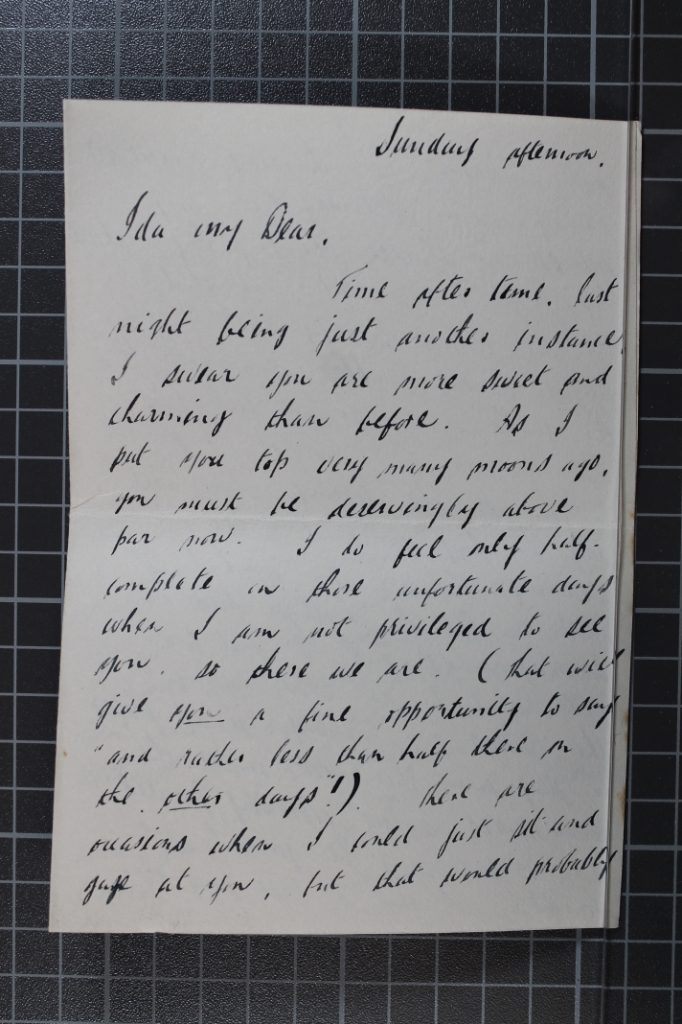 Sunday afternoon.
Ida my Dear,
Time after time, last
night being just another instance,
I swear you are more sweet and
charming than before. As I
put you top very many moons ago,
you must be deservingly above
par now. I do feel only half-
complete on those unfortunate days
when I am not privileged to see
you. so there we are. (that will
give you a fine opportunity to say
"and rather less than half there on
the other days"!) there are
occasions when I could just sit and
gaze at you, but that would probably